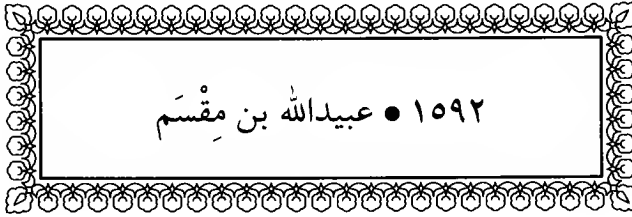 ١٥٩٢ ● عبيدالله بن مِقْسَم